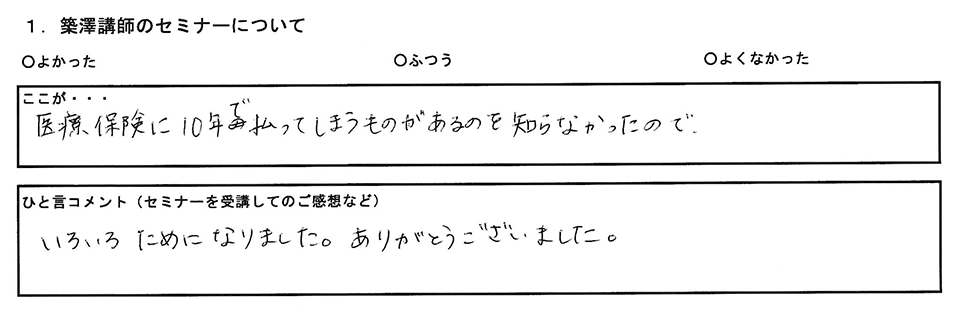 1. 築澤講師のセミナーについて
○よかった ○ふつう ○よくなかった
ここが・・・
医療保険に10年で払ってしまうものがあるのを知らなかったので.
ひと言コメント（セミナーを受講してのご感想など）
いろいろ ためになりました。ありがとうございました。